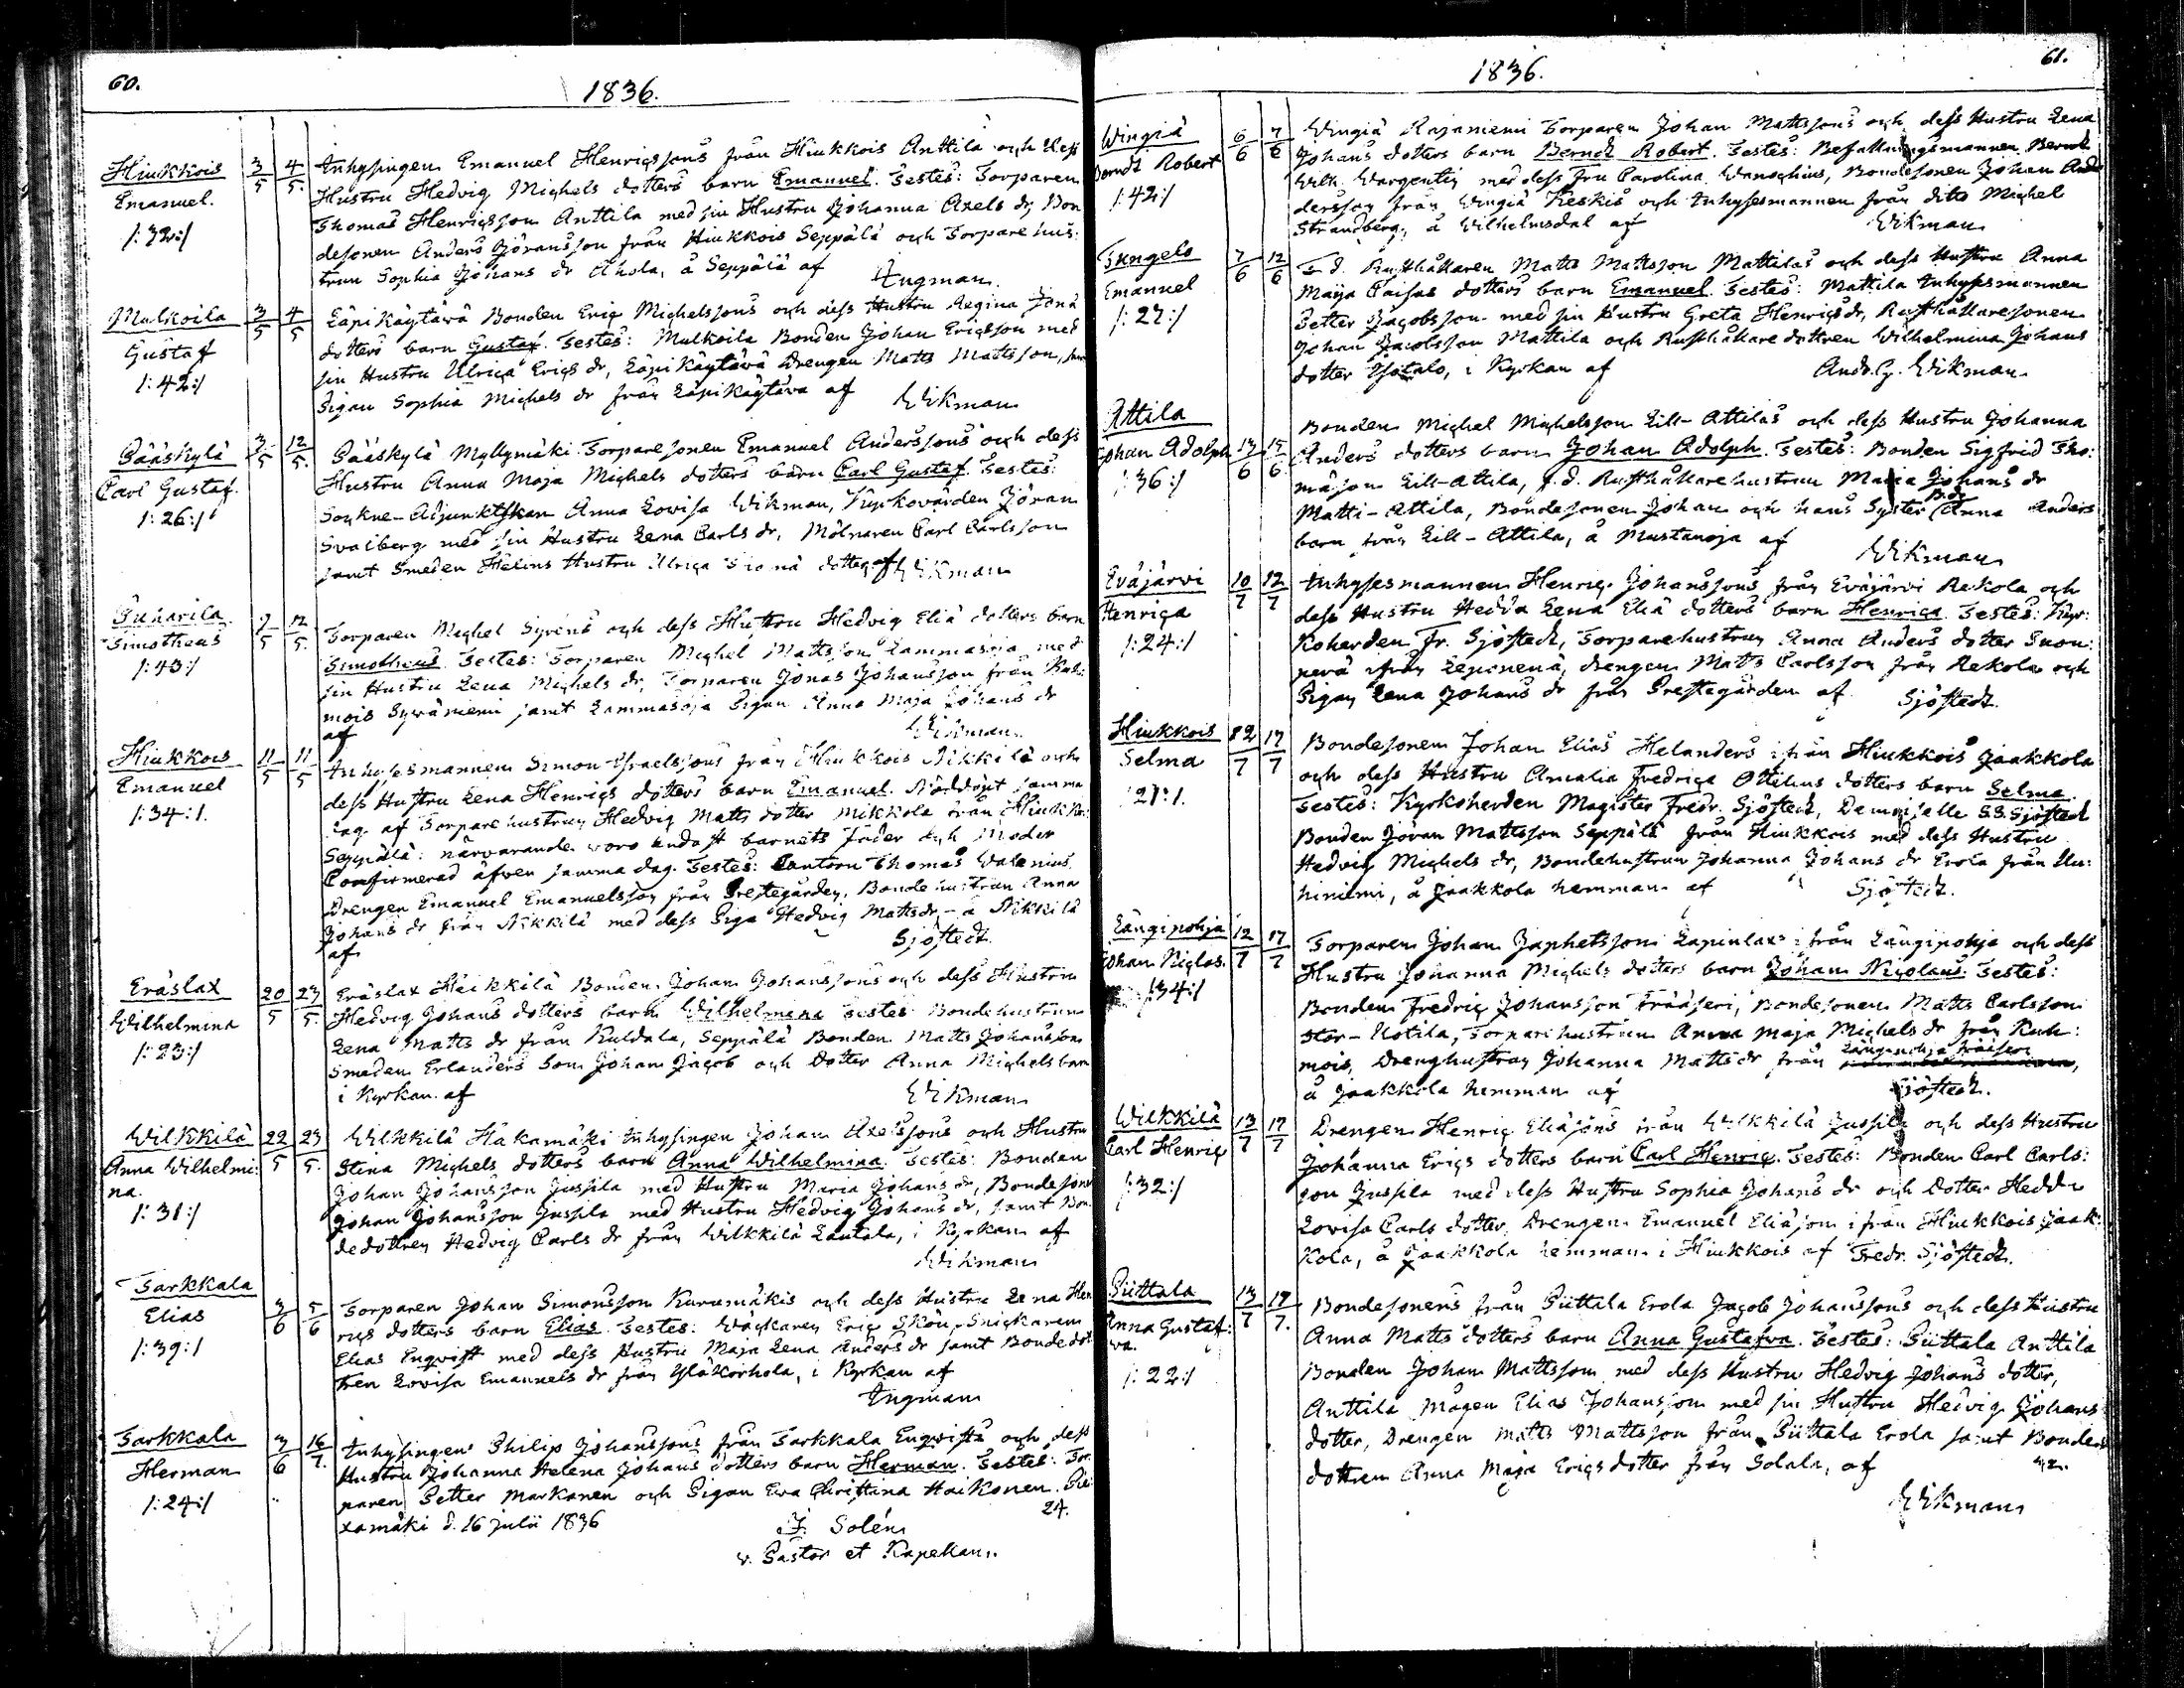 60.
1836.
Hiukkois
Emanuel.
/:32:/
3/5 4/5.
Inhysingen Emanuel Henrigssons från Hiukkois Anttila och dess
Hustru Hedvig Michels dotters barn Emanuel. Testes: Torparen
Thomas Henrigsson Anttila med sin Hustru Johanna Axels dr, Bon
desonen Anders Göransson från Hiukkois Seppälä och Torparehus:
trun Sophia Johans dr Ahola, å Seppälä af
Ingman.
Mulkoila
Gustaf
/:42:/
3/5 4/5
Läpikäytävä Bonden Eric Michelssons och dess Hustru Regina Jona
dotters barn Gustaf. Testes: Mulkoila Bonden Johan Ericsson med
sin Hustru Ulrica Erics dr, Läpikäytävä Drengen Matts Mattsson,
Pigan Sophia Michels dr från Läpikäytävä af
Wikman
Pääskylä
Carl Gustaf.
/:26:/
3/5 12/5.
Pääskylä Myllymäki Torparesonen Emanuel Anderssons och dess
Hustru Anna Maja Michels dotters barn Carl Gustaf. Testes:
Sockne-Adjunktskan Anna Lovisa Wikman, Kyrkovärden Jöran
Svalberg med sin Hustru Lena Carls dr, Mölnaren Carl Carlsson
samt Smeden Helins Hustru Ulrica dotter af Wikman
Puharila
Timotheus
/:43:/
7/5 12/5.
Torparen Michel Syrens och dess Hustru Hedvig Eliä dotters barn
Timotheus. Testes: Torparen Michel Mattsson Lammasoja med
sin Hustru Lena Michels dr, Torparen Jonas Johansson från Kuh:
mois Syväniemi samt Lammasoja Pigan Anna Maja Johans dr
af
Wikman.
Hiukkois
Emanuel
/:34:/.
11/5 11/5
Inhysesmannen Simon Israelssons från Hiukkois Nikkilä och
dess Hustru Lena Henrigs dotters barn Emanuel. Nöddöpt samma
dag af Torparehustrun Hedvig Matts dotter Mikkola från Hiukkois
Seppälä: närvarande voro endast barnets Fader och Moder
Confirmerad äfven samma dag. Testes: Cantorn Thomas Walenius
Drengen Emanuel Emanuelsson från Prestegården, Bondehustrun Anna
Johans dr från Nikkilä med dess Piga Hedvig Mattsdr,- å Nikkilä
af
Sjöstedt.
Eräslax
Wilhelmina
/:23:/
20/5 23/5.
Eräslax Heikkilä Bonden Johan Johanssons och dess Hustru
Hedvig Johans dotters barn Wilhelmina Testes: Bondehustrun
Lena Matts dr från Kuldala, Seppälä Bonden Matts Johansson
Smeden Erlanders Son Johan Jacob och Dotter Anna Michels barn
i Kyrkan af
Wikman
Wilkkilä
Anna Wilhelmi:
na.
/:31:/
22/5 23/5.
Wilkkilä Hakamäki Inhysingen Johan Axelssons och Hustru
Stina Michels dotters barn Anna Wilhelmina. Testes: Bonden
Johan Johansson Jussila med Hustru Maria Johans dr, Bondesonen
Johan Johansson Jussila med Hustru Hedvig Johans dr, samt Bon:
dedottren Hedvig Carls dr från Wilkkilä Lautala, i Kyrkan af
Wikman
Sarkkala
Elias
/:39:/
3/6 5/6
Torparen Johan Simonsson Kurumäkis och dess Hustru Lena Hen
rigs dotters barn Elias. Testes: Eric Snickaren
Elias Enqvist med dess Hustru Maja Lena Anders dr samt Bondedot
tren Lovisa Emanuels dr från Yläkorhola, i Kyrkan af
Ingman
Sarkkala
Herman
/:24:/
3/6 16/7.
Inhysingen Philip Johanssons från Sarkkala Enqvists och dess
Hustru Johanna Helena Johans dotters barn Herman. Testes: Tor:
paren Petter Markanen och Pigan Eva Christina Haikonen. Pie
xamäki d. 16 Julii 1836
24.
J. Solén
v. Pastor et Kapellan.
61.
1836.
Wingiä
Berndt Robert
/:42:/
6/6 7/6
Wingiä Rajaniemi Torparen Johan Mattssons och dess Hustru Lena
Johans dotters barn Berndt Robert. Testes: Befallningsmannen Bernt
Wilh. Wargentin med dess Fru Carolina Wanochius, Bondesonen Johan Ande
dersson från Wingiä Keskis och Inhysesmannen från dito Michel
Strandberg, å Wilhelmsdal af
Wikman
Tungelo
Emanuel
/:27:/
7/6 12/6
F. d. Rusthållaren Matts Mattsson Mattilas och dess Hustru Anna
Maija Caisas dotters barn Emanuel. Testes: Mattila Inhysesmannen
Petter Jacobsson med sin Hustru Greta Henrigsdr, Rusthållaresonen
Johan Jacobsson Mattila och Rusthållare dottren Wilhelmina Johans
dotter Ysotalo, i Kyrkan af
And. G. Wikman.
Attila
Johan Adolph
/:36:/
13/6 15/6
Bonden Michel Michelsson Lill-Attilas och dess Hustru Johanna
Anders dotters barn Johan Adolph. Testes: Bonden Sigfrid Tho:
masson Lill-Attila, f. d. Rusthållarehustrun Maria Johans dr
Matti-Attila, Bondesonen Johan och hans Syster Anna Anders
barn från Lill-Attila, å Mustanoja af
Wikman
Eväjärvi
Henrica
/:24:/
10/7 12/7
Inhysesmannen Henric Johanssons från Eväjärvi Rekola och
dess Hustru Hedda Lena Eliä dotters barn Henrica. Testes: Kyr:
koherden Fr. Sjöstedt, Torparehustrun Anna Anders dotter Suon:
perä från Leponena, drengen Matts Carlsson från Rekola och
Pigan Lena Johans dr från Prestegården af
Sjöstedt.
Hiukkois
Selma
/:27:/.
12/7 17/7
Bondesonen Johan Elias Helanders ifrån Hiukkois Jaakkola
och dess Hustru Amalia Fredrica Ottilius dotters barn Selma.
Testes: Kyrkoherden Magister Fredr. Sjöstedt, Demoiselle S.S. Sjöstedt
Bonden Jöran Mattsson Seppälä från Hiukkois med dess Hustru
Hedvig Michels dr, Bondehustrun Johanna Johans dr Erola från Uu:
siniemi, å Jaakkola hemman af
Sjöstedt.
Längipohja
Johan Niclas.
/:34:/
12/7 17/7
Torparen Johan Japhetsson Lapinlax ifrån Längipohja och dess
Hustru Johanna Michels dotters barn Johan Nicolaus. Testes:
Bonden Fredric Johansson Frääseri, Bondesonen Matts Carlsson
Stor-Kotila, Torparehustrun Anna Maja Michels dr från Kuh:
mois, Drenghustrun Johanna Matts dr från Längipohja Frääseri,
å Jaakkola hemman af
Sjöstedt.
Wilkkilä
Carl Henric
/:32:/
13/7 17/7
Drengen Henric Eliäsöns från Wilkkilä Jussila och dess Hustru
Johanna Erics dotters barn Carl Henric. Testes: Bonden Carl Carls:
son Jussila med dess Hustru Sophia Johans dr och Dotter Hedda
Lovisa Carls dotter, Drengen Emanuel Eliäson ifrån Hiukkois Jaak:
kola, å Jaakkola hemman i Hiukkois af Fredr. Sjöstedt.
Piittala
Anna Gustaf:
va.
/:22:/
13/7 17/7.
Bondesonens från Piittala Erola Jacob Johanssons och dess Hustru
Anna Matts dotters barn Anna Gustafva. Testes: Piittala Anttila
Bonden Johan Mattsson med dess Hustru Hedvig Johans dotter,
Anttila Mågen Elias Johansson med sin Hustru Hedvig Johans
dotter, Drengen Matts Mattsson från Piittala Erola samt Bonde
dottren Anna Maja Erics dotter från Solala, af
Wikman